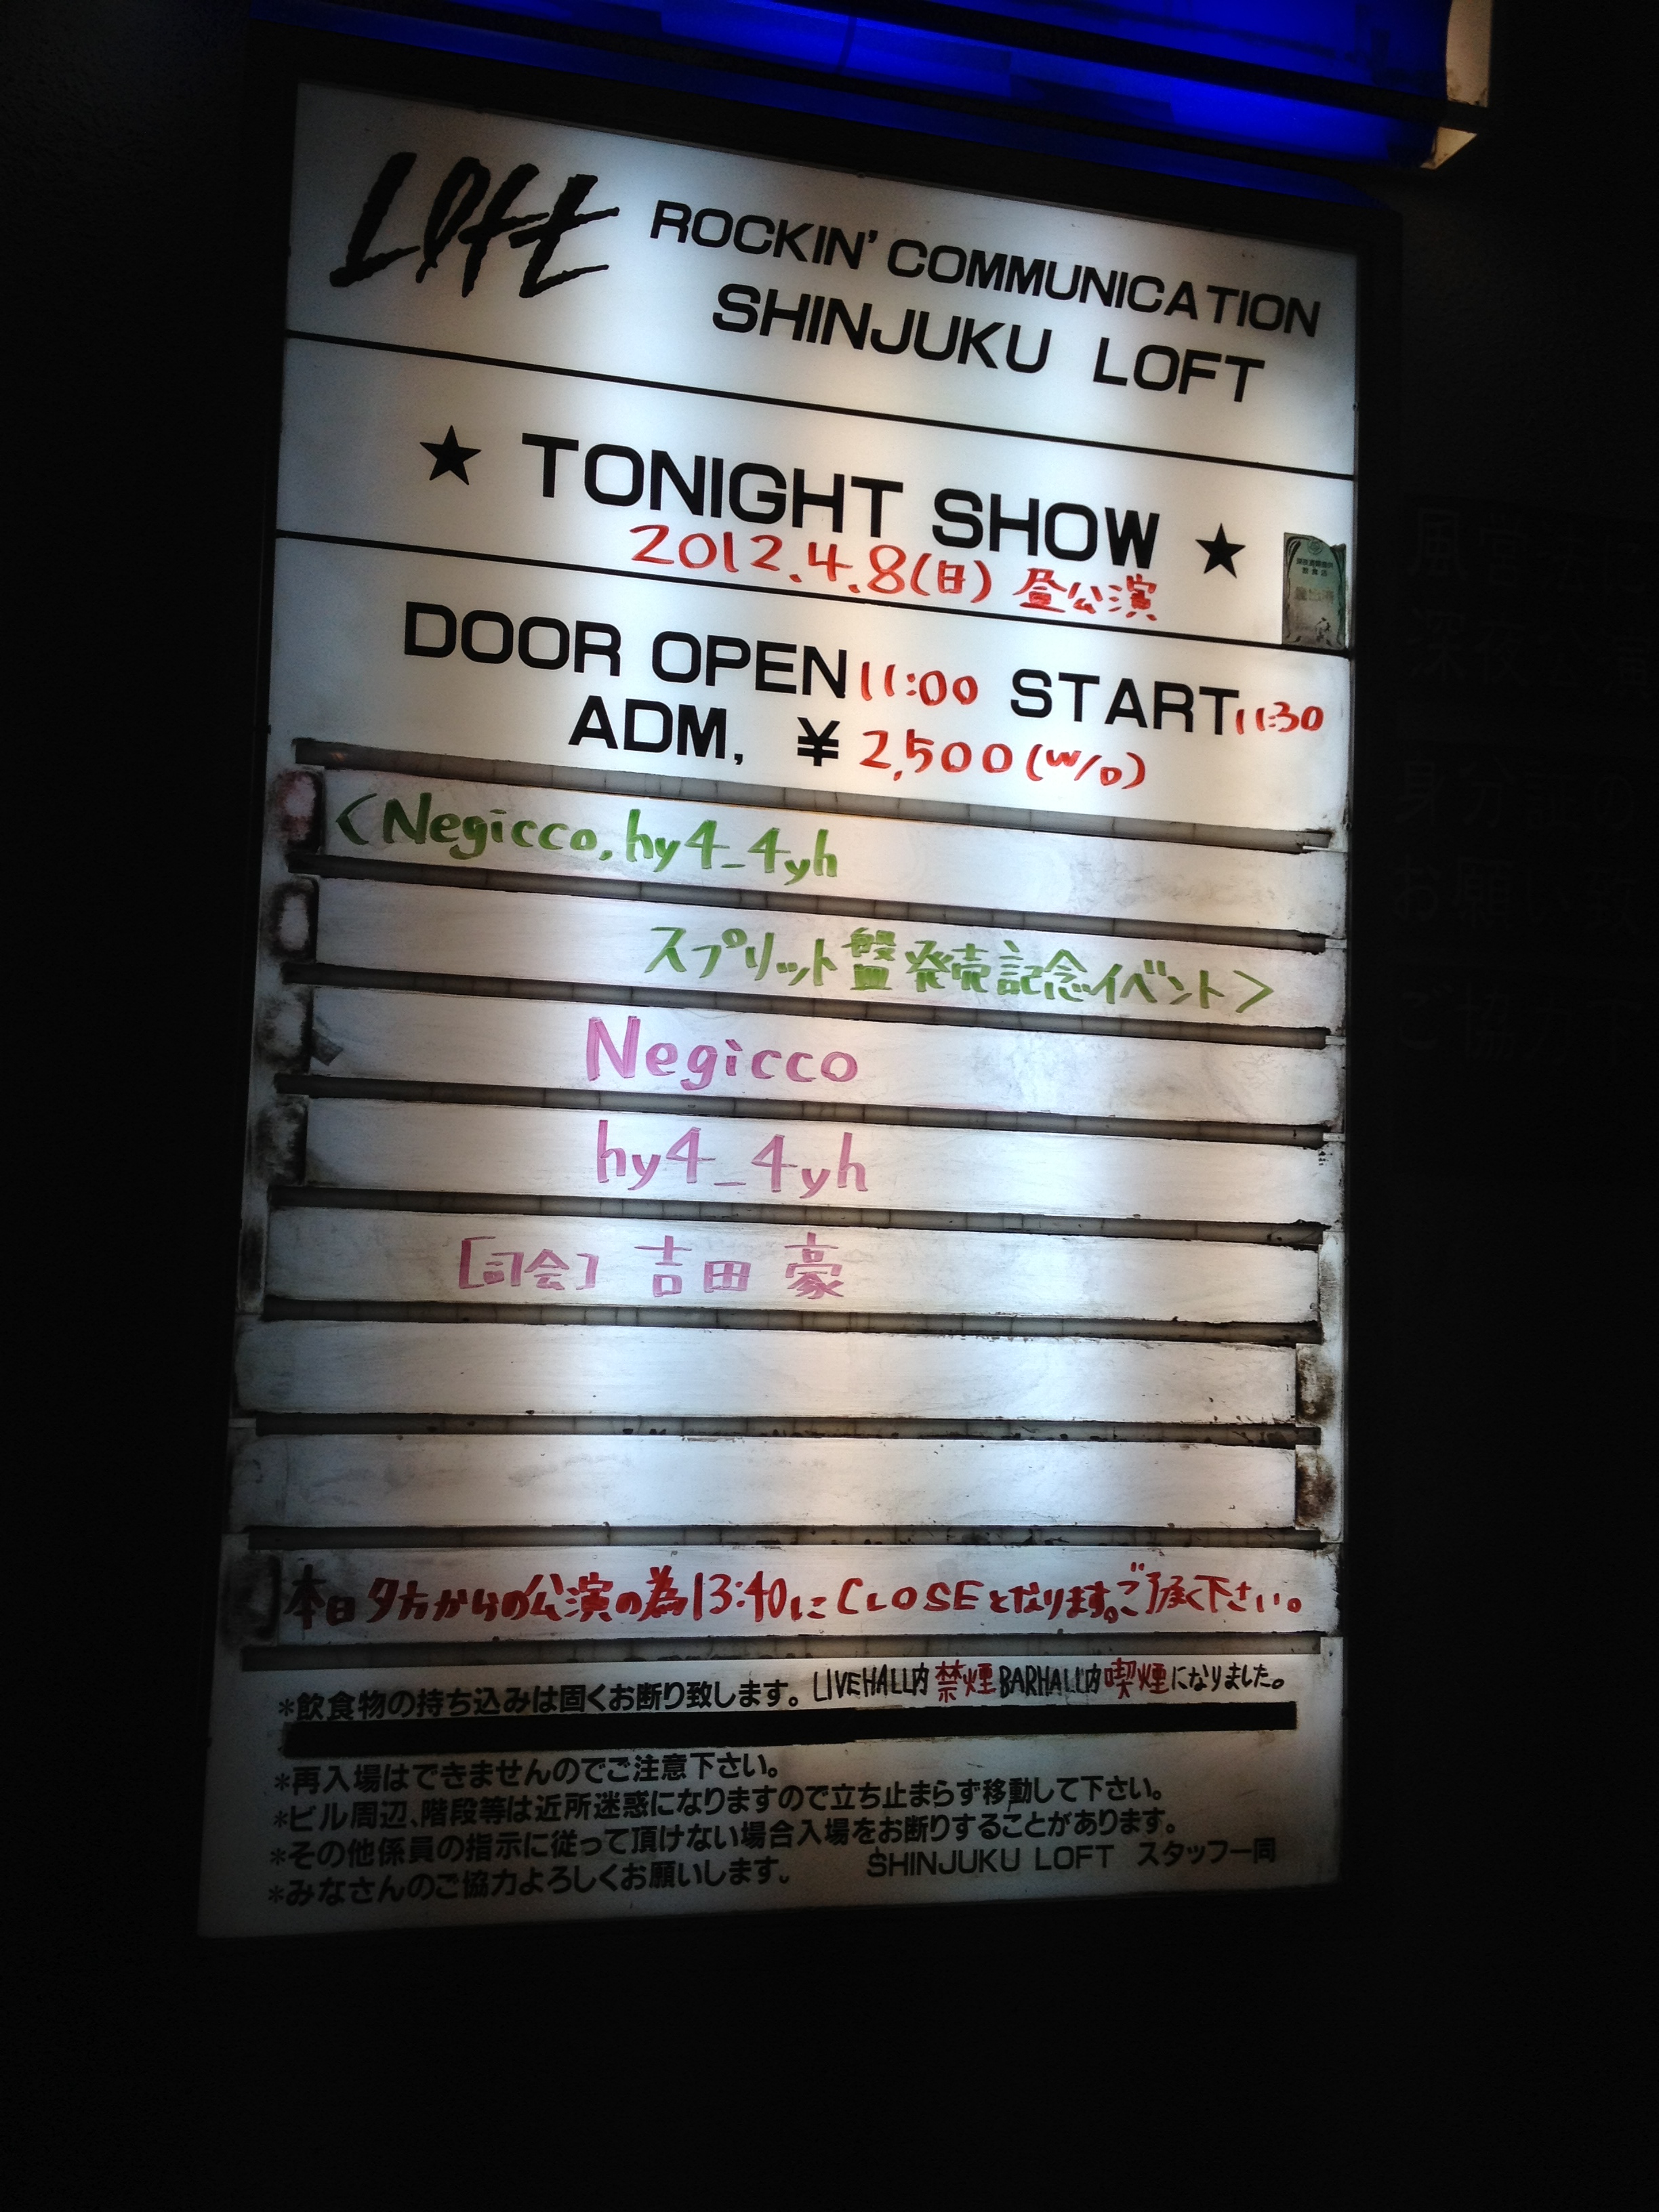 LOFT ROCKIN' COMMUNICATION
SHINJUKU LOFT
★ TONIGHT SHOW ★
2012.4.8(日) 昼公演
DOOR OPEN 11:00 START 11:30
ADM, ¥ 2,500(w/o)
<Negicco, hy4_4yh
スプリット盤発売記念イベント>
Negicco
hy4_4yh
[司会] 吉田 豪
本日夕方からの公演の為13:40にCLOSEとなります。ご了承下さい。
*飲食物の持ち込みは固くお断り致します。LIVEHALL内禁煙BARHALL内喫煙になりました。
*再入場はできませんのでご注意下さい。
*ビル周辺、階段等は近所迷惑になりますので立ち止まらず移動して下さい。
*その他係員の指示に従って頂けない場合入場をお断りすることがあります。
*みなさんのご協力よろしくお願いします。 SHINJUKU LOFT スタッフ一同